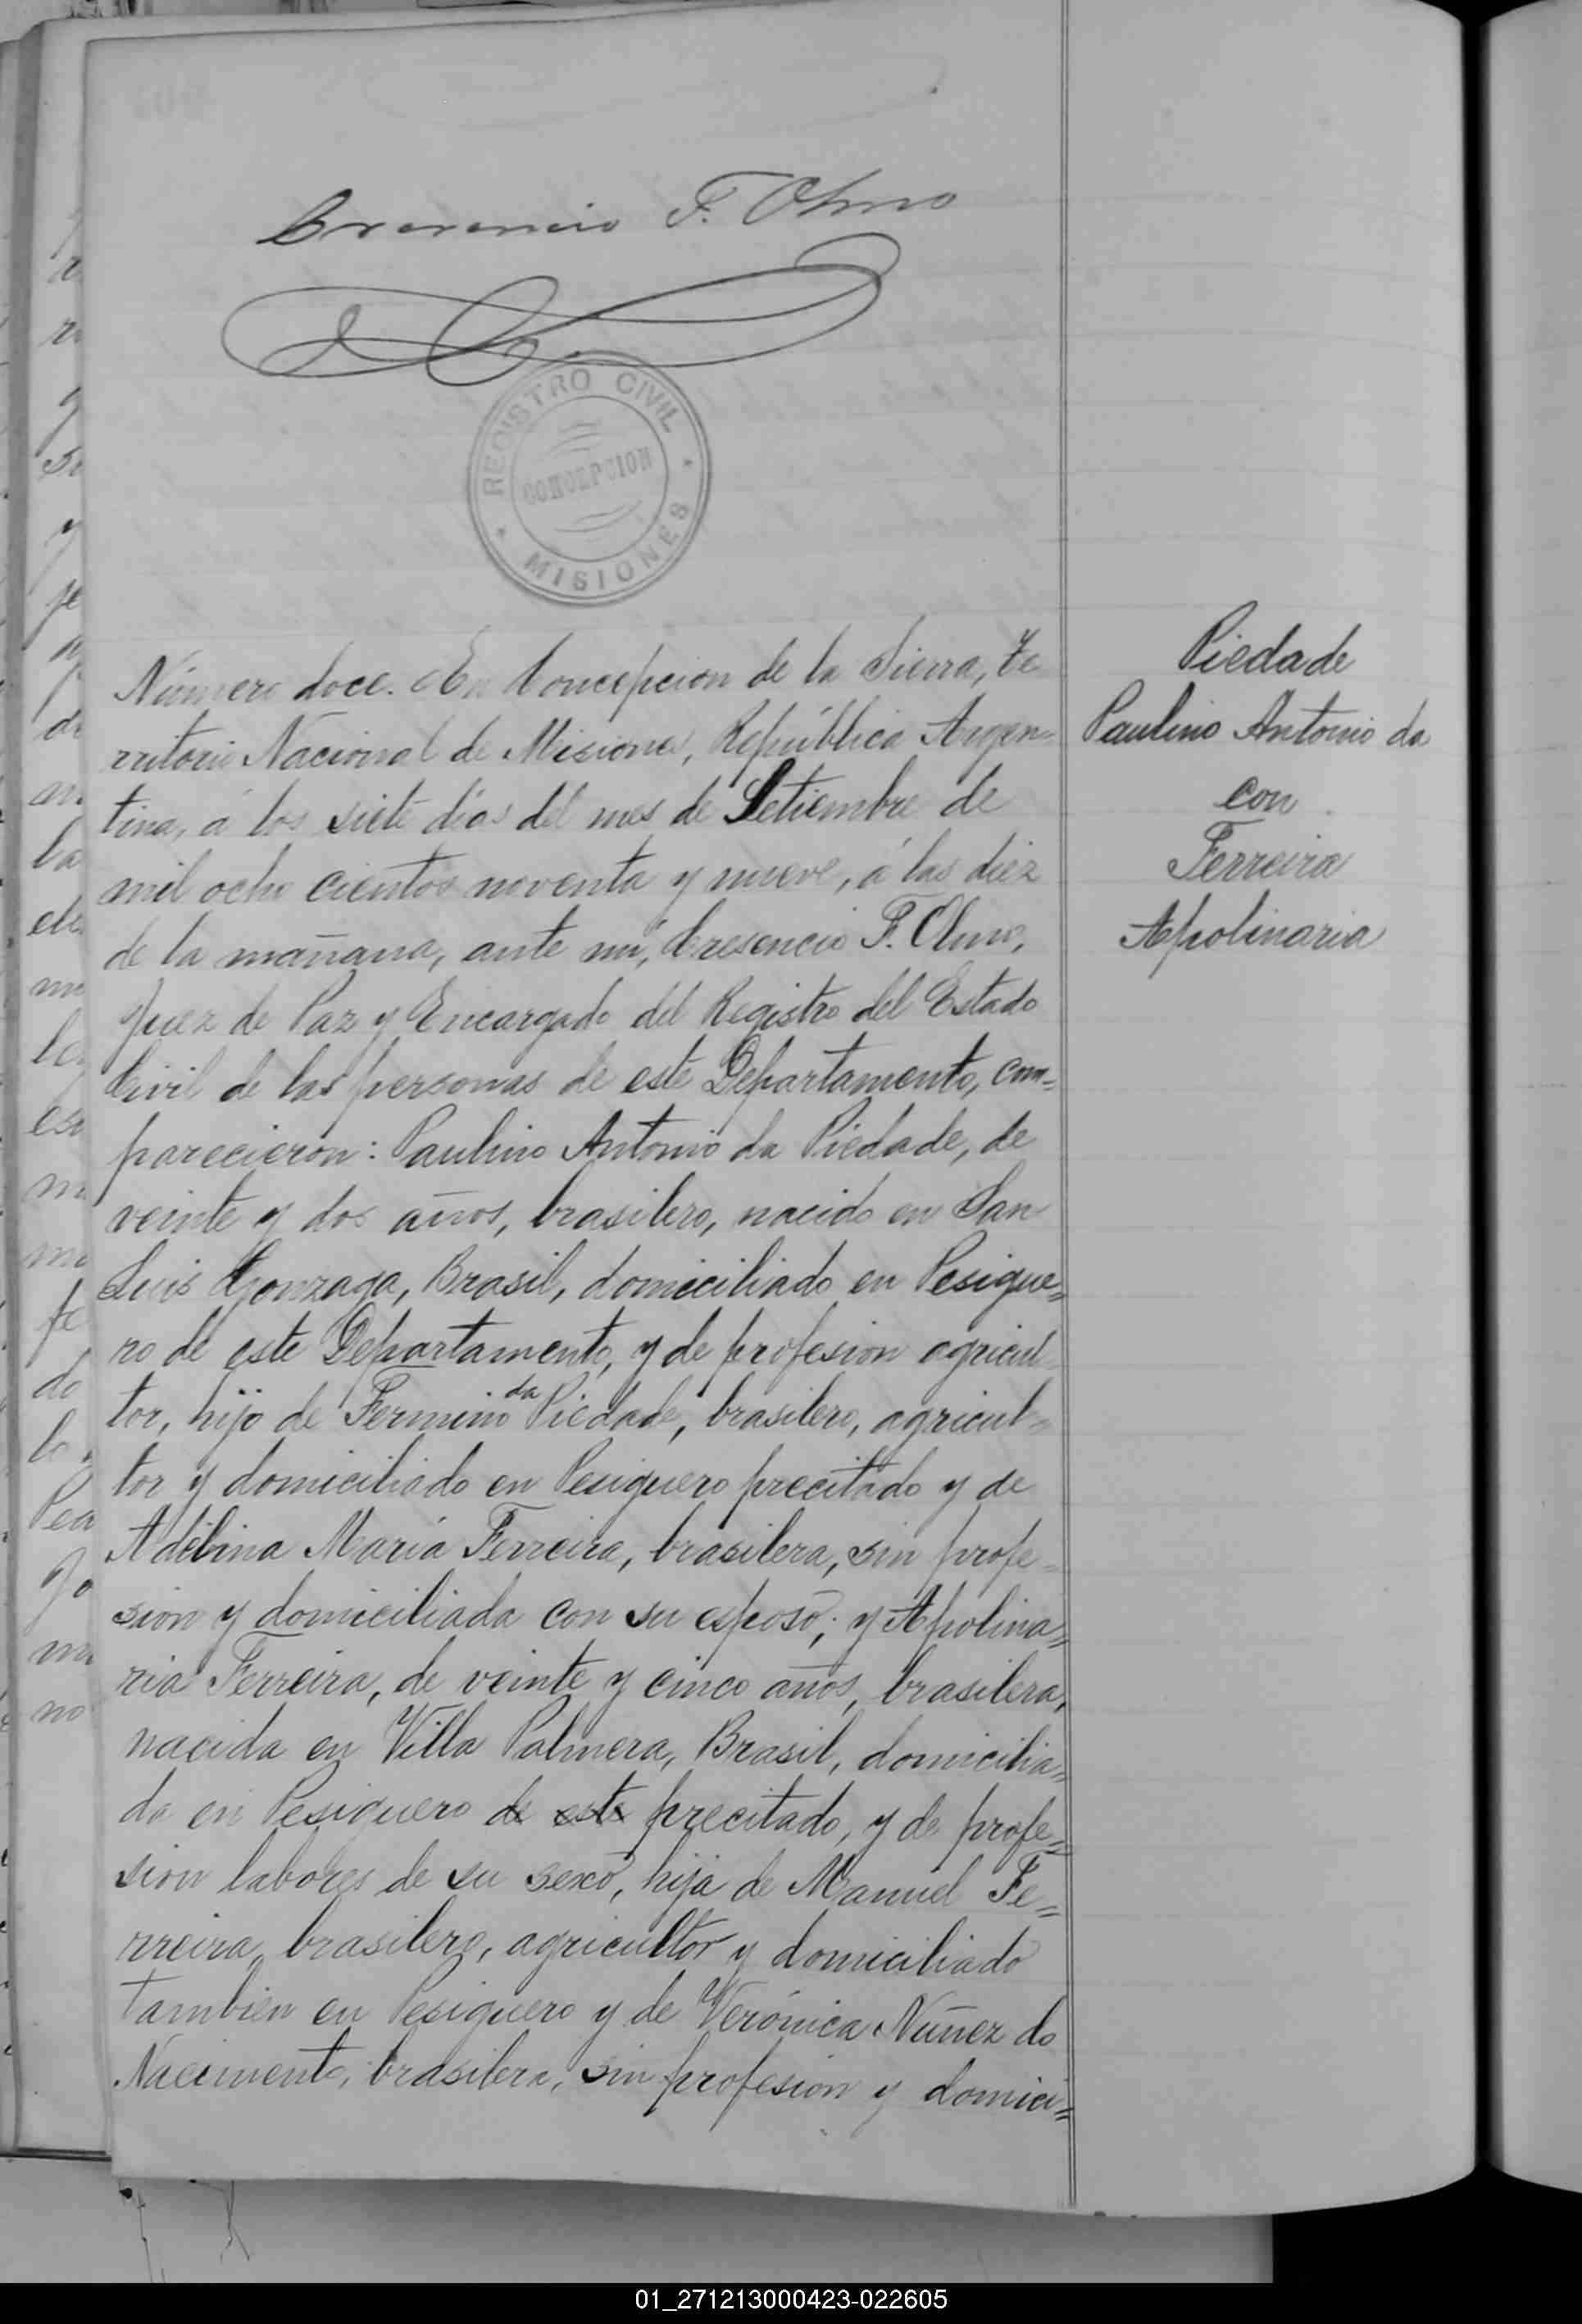 Cresencio F. Olmo
REGISTRO CIVIL
CONCEPCION
MISIONES
Número doce. En Concepcion de la Sierra, Te
rritorio Nacional de Misiones, República Argen=
tina, á los siete dias del mes de Setiembre de
mil ocho cientos noventa y nueve, á las diez
de la mañana, ante mí, Cresencio F. Olmo,
Juez de Paz y Encargado del Registro del Estado
Civil de las personas de este Departamento, com=
parecieron: Paulino Antonio da Piedade, de
veinte y dos años, brasilero, nacido en San
Luis Gonzaga, Brasil, domiciliado en Pesigue=
ro de este Departamento, y de profesion agricul=
tor, hijo de Fermino da Piedade, brasilero, agricul=
tor y domiciliado en Pesiguero precitado y de
Adelina María Ferreira, brasilera, sin profe=
sion y domiciliada con su esposo; y Apolina=
ria Ferreira, de veinte y cinco años, brasilera,
nacida en Villa Palmera, Brasil, domicilia=
da en Pesiguero de este precitado, y de profe=
sion labores de su sexo, hija de Manuel Fe=
rreira, brasilero, agricultor y domiciliado
tambien en Pesiguero y de Verónica Nuñez do
Nacimento, brasilera, sin profesion y domici=
Piedade
Paulino Antonio da
con
Ferreira
Apolinaria
01_271213000423-022605